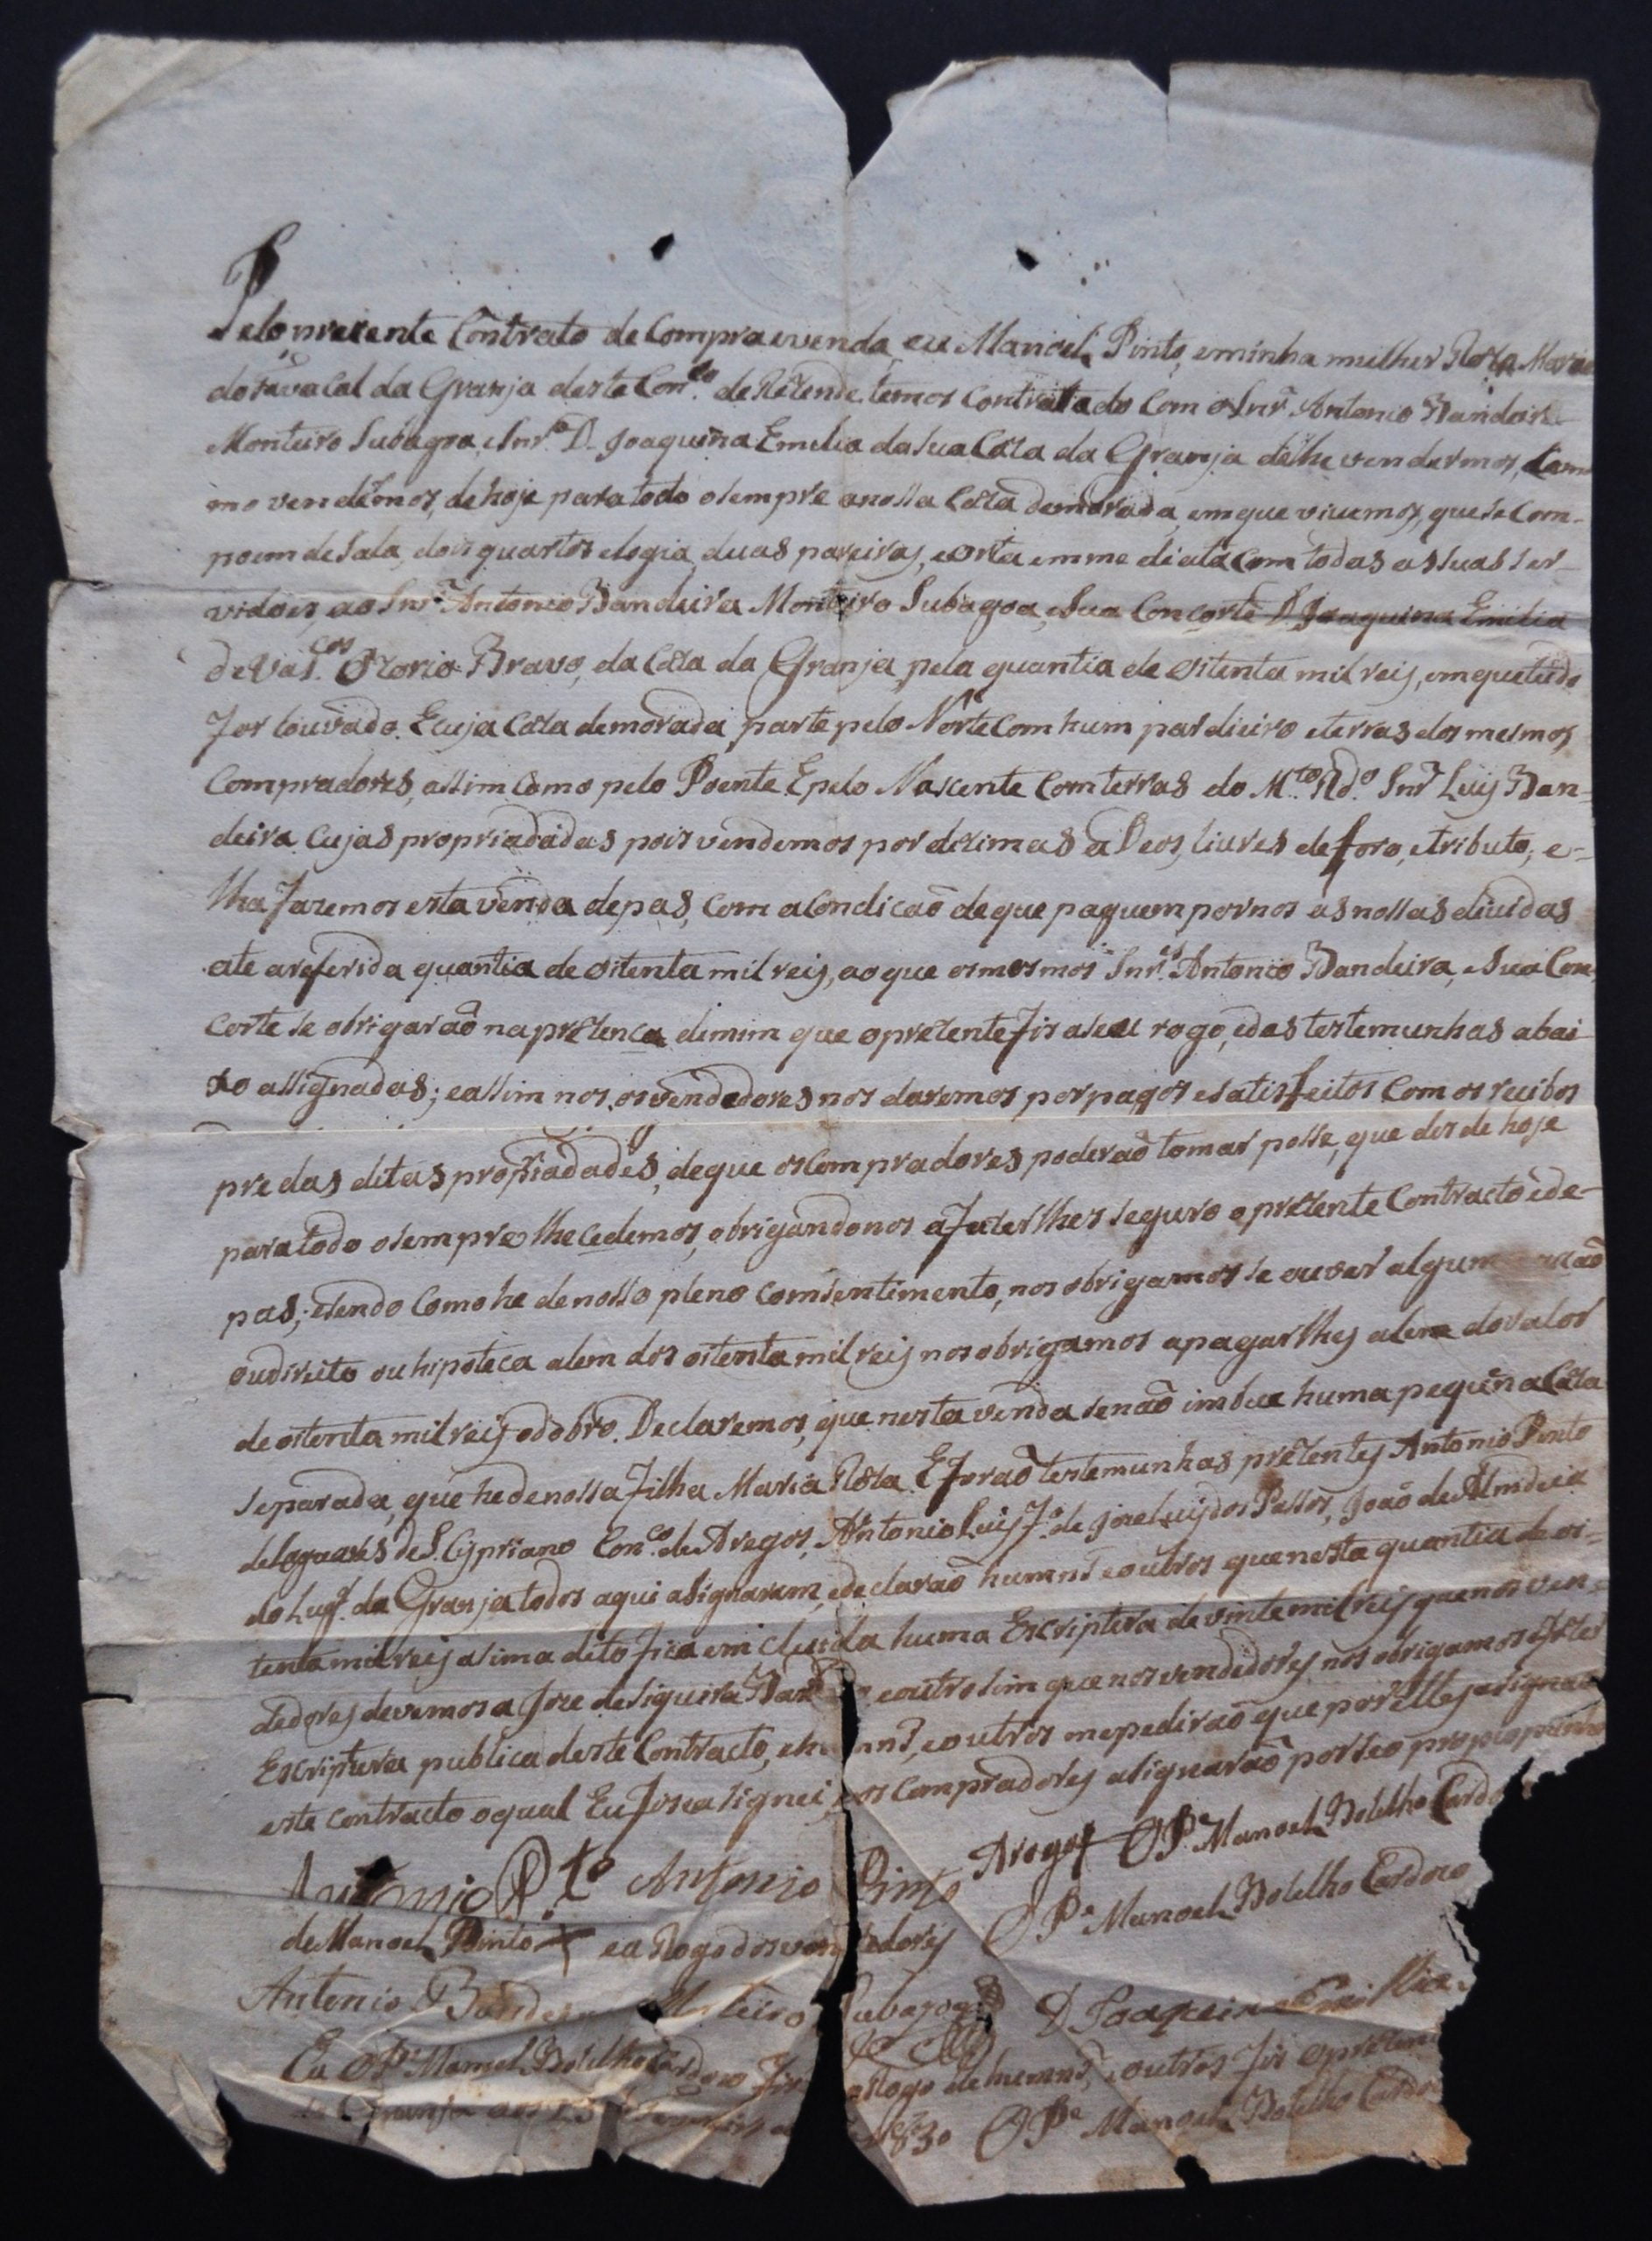 Pelo prezente Contrato de Compra evenda eu Manoel Pinto, eminha mulher Roza Maria
do favacal da Granja deste Con.co de Rezende temos Contratado Com o Snr. Antonio Bandeira
Monteiro Subagoa, e Snr.a D. Joaquina Emilia da sua Caza da Granja de lhe vendermos, Com
mo vendemos, de hoje para todo o sempre a nossa Caza de morada, em que vivemos, que se Com-
poem de Sala, dois quartos e logia, duas pareiras, e orta emmediata com todas as suas ser-
vidois, ao Snr. Antonio Bandeira Monteiro Subagoa, e Sua Concorte D. Joaquina Emilia
de Vas.cos Ozorio Bravo, da Caza da Granja, pela quantia de oitenta mil reis, em que tudo
for louvado. E cuja Caza de morada parte pelo Norte Com hum pardieiro e terras dos mesmos
Compradores, assim Como pelo Poente. E pelo Nascente Com terras do M.to Rd.o Snr. Luis Ban-
deira. Cujas propriadadas pois vendemos por dizimas a Deos, livres de foro, e tributo; e-
lha fazemos esta venda de pas, com a Condicaõ de que paguem por nos as nossas dividas
ate a referida quantia de oitenta mil reis, ao que os mesmos Snr.es Antonio Bandeira, e Sua Con-
corte se obrigaraõ na prezenca de mim que o prezente fis a seu rogo, e das testemunhas abai
xo assignadas; e assim nos, os vendedores nos daremos por pagos e satisfeitos Com os recibos
pre das ditas propriadades, de que os Compradores poderaõ tomar posse, que des de hoje
para todo o sempre lhe cedemos, obrigandonos a fazerlhes seguro o prezente Contracto e de-
pas; e sendo Como he de nosso pleno comsentimento, nos obrigamos se ouver algum
ou direito ou hipoteca alem dos oitenta mil reis nos obrigamos a pagarlhes alem do valor
de oitenta mil reis o dobro. Declaremos, que nesta venda se naõ imbue huma pequena Caza
separada, que he de nossa filha Maria Roza. E foraõ testemunhas prezentes Antonio Pinto
de lagoares de S. Cypriano Con.co de Aregos, Antonio Luis f.o de Joze Luis dos Passos, Joaõ de Almdeia
do Lug.r da Granja todos aqui asignaram, e declaraõ humns e outros que nesta quantia de oi-
tenta mil reis asima dito fica em cluida huma Escriptura de vinte mil reis que nos ven-
dedores devemos a Joze de Siqueira e outro sim que nos vendedores nos obrigamos a fazer
Escriptura publica deste Contracto, e humns, e outros me pediraõ que por elles asignace
este contracto o qual Eu fis e asignei, e os Compradores asignaraõ por seo propio punho
Antonio P.to Antonio Pinto Arogo O P.e Manoel Bolelho Cardo
de Manoel Pinto X e a Rogo dos vendedores O P.e Manoel Bolelho Cardozo
Antonio Bandeira Monteiro Subagoa D Joaquina Emillia
Eu O P.e Manoel Bolelho Cardozo fis a Rogo de humns, e outros fis o prezen
Granja aos 1830 O P.e Manoel Bolelho Cardo